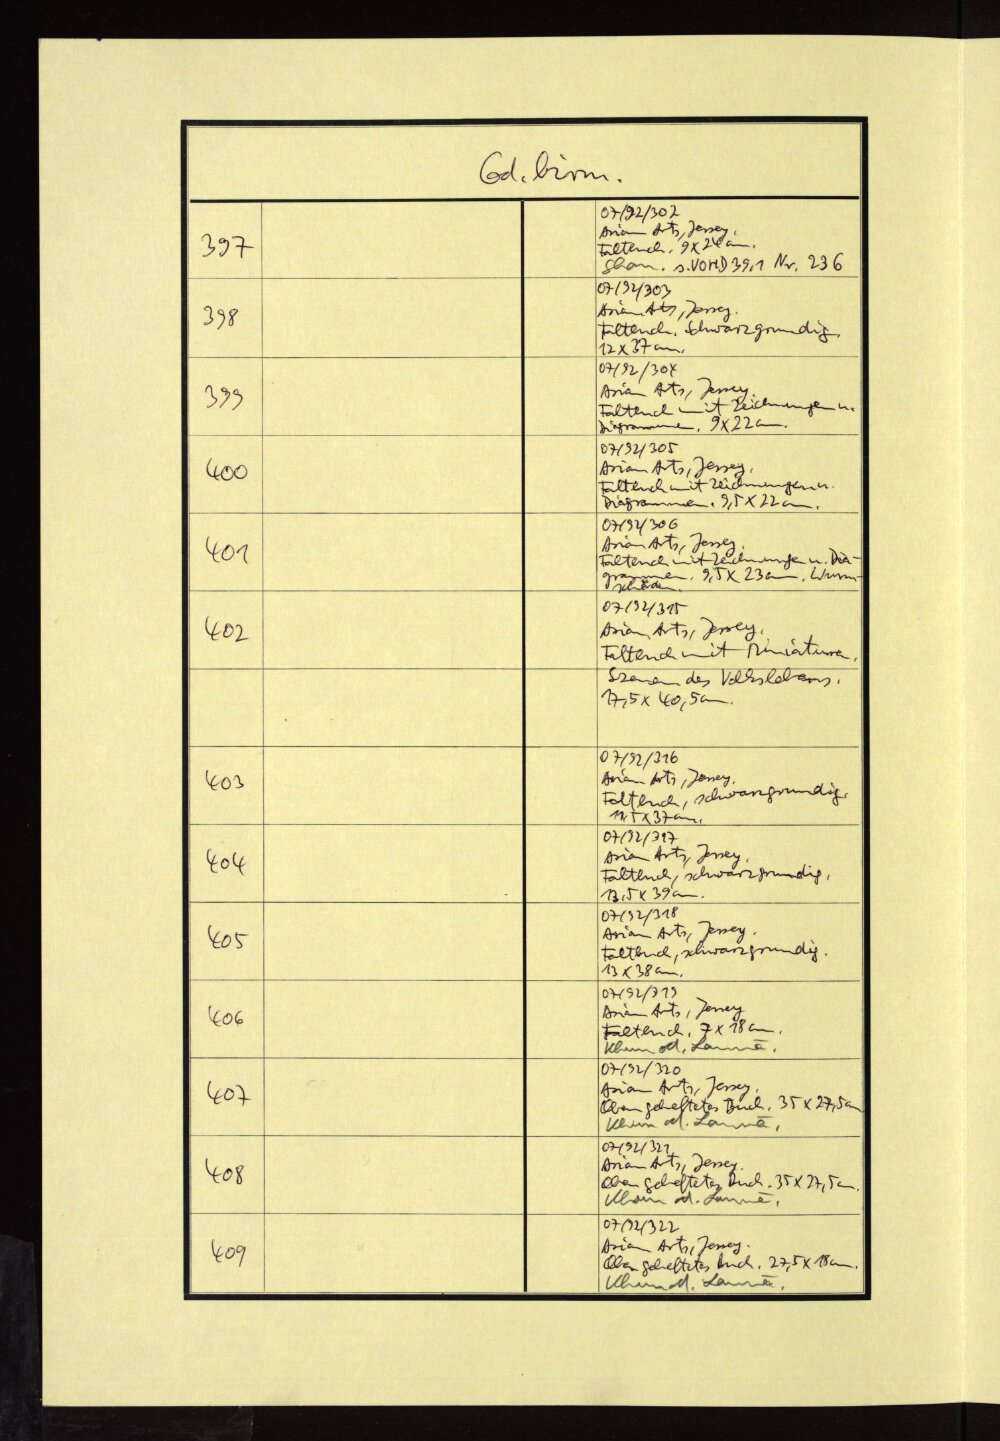 Cod. birm.
397
07/92/302
Asian Arts, Jersey.
Faltbuch. 9 x 24 cm.
Shan. s. VOHD 39,1 Nr. 236
398
07/92/303
Asian Arts, Jersey.
Faltbuch. Schwarzgrundig.
12 x 37 cm.
399
07/92/304
Asian Arts, Jersey
Faltbuch mit Zeichnungen u.
Diagrammen. 9 x 22 cm.
400
07/92/305
Asian Arts, Jersey.
Faltbuch mit Zeichnungen u.
Diagrammen. 9,5 x 22 cm.
401
07/92/306
Asian Arts, Jersey.
Faltbuch mit Zeichnungen u. Dia-
grammen. 9,5 x 23 cm. Wurm-
schäden.
402
07/92/315
Asian Arts, Jersey.
Faltbuch mit Miniaturen.
Szenen des Volkslebens.
17,5 x 40,5 cm.
403
07/92/316
Asian Arts, Jersey.
Faltbuch, schwarzgrundig.
x 37 cm.
404
07/92/317
Asian Arts, Jersey.
Faltbuch, schwarzgrundig.
13,5 x 39 cm.
405
07/92/318
Asian Arts, Jersey.
Faltbuch, schwarzgrundig.
13 x 38 cm.
406
07/92/319
Asian Arts, Jersey
Faltbuch. 7 x 18 cm.
Khün od. Lanna.
407
07/92/320
Asian Arts, Jersey.
Oben geheftetes Buch. 35 x 27,5 cm
Khün od. Lanna.
408
07/92/321
Asian Arts, Jersey.
Oben geheftetes Buch. 35 x 27,5 cm.
Khün od. Lanna.
409
07/92/322
Asian Arts, Jersey.
Oben geheftetes Buch. 27,5 x 18 cm.
Khün od. Lanna.